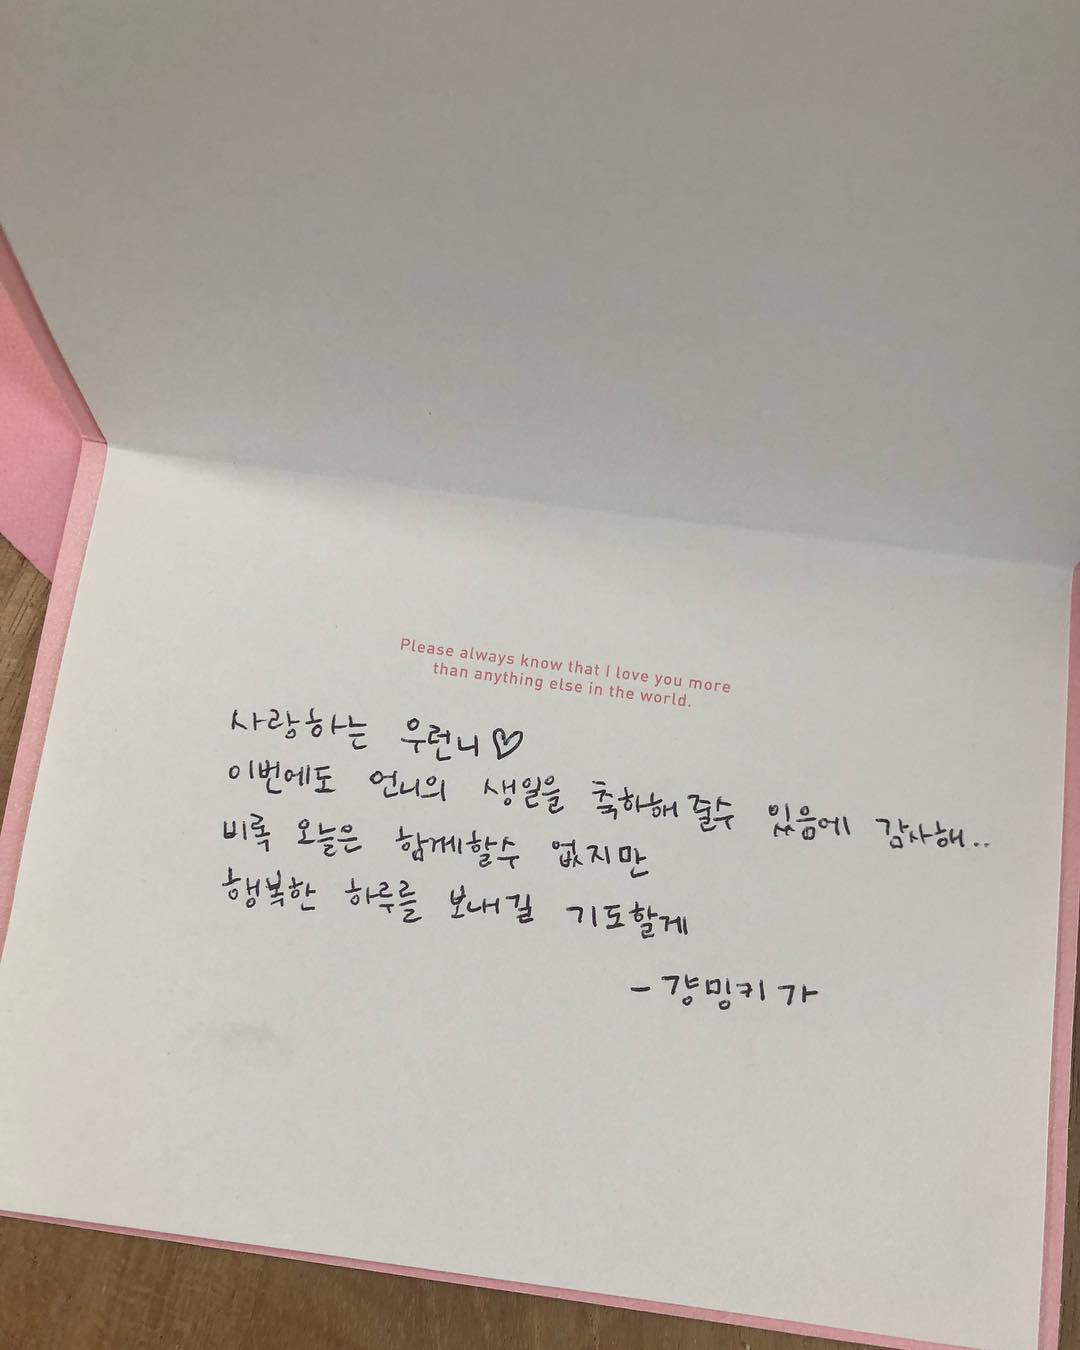 Please always know that I love you more
than anything else in the world.
사랑하는 우런니♡
이번에도 언니의 생일을 축하해 줄수 있음에 감사해..
비록 오늘은 함께할수 없지만
행복한 하루를 보내길 기도할게
- 걍밍키가